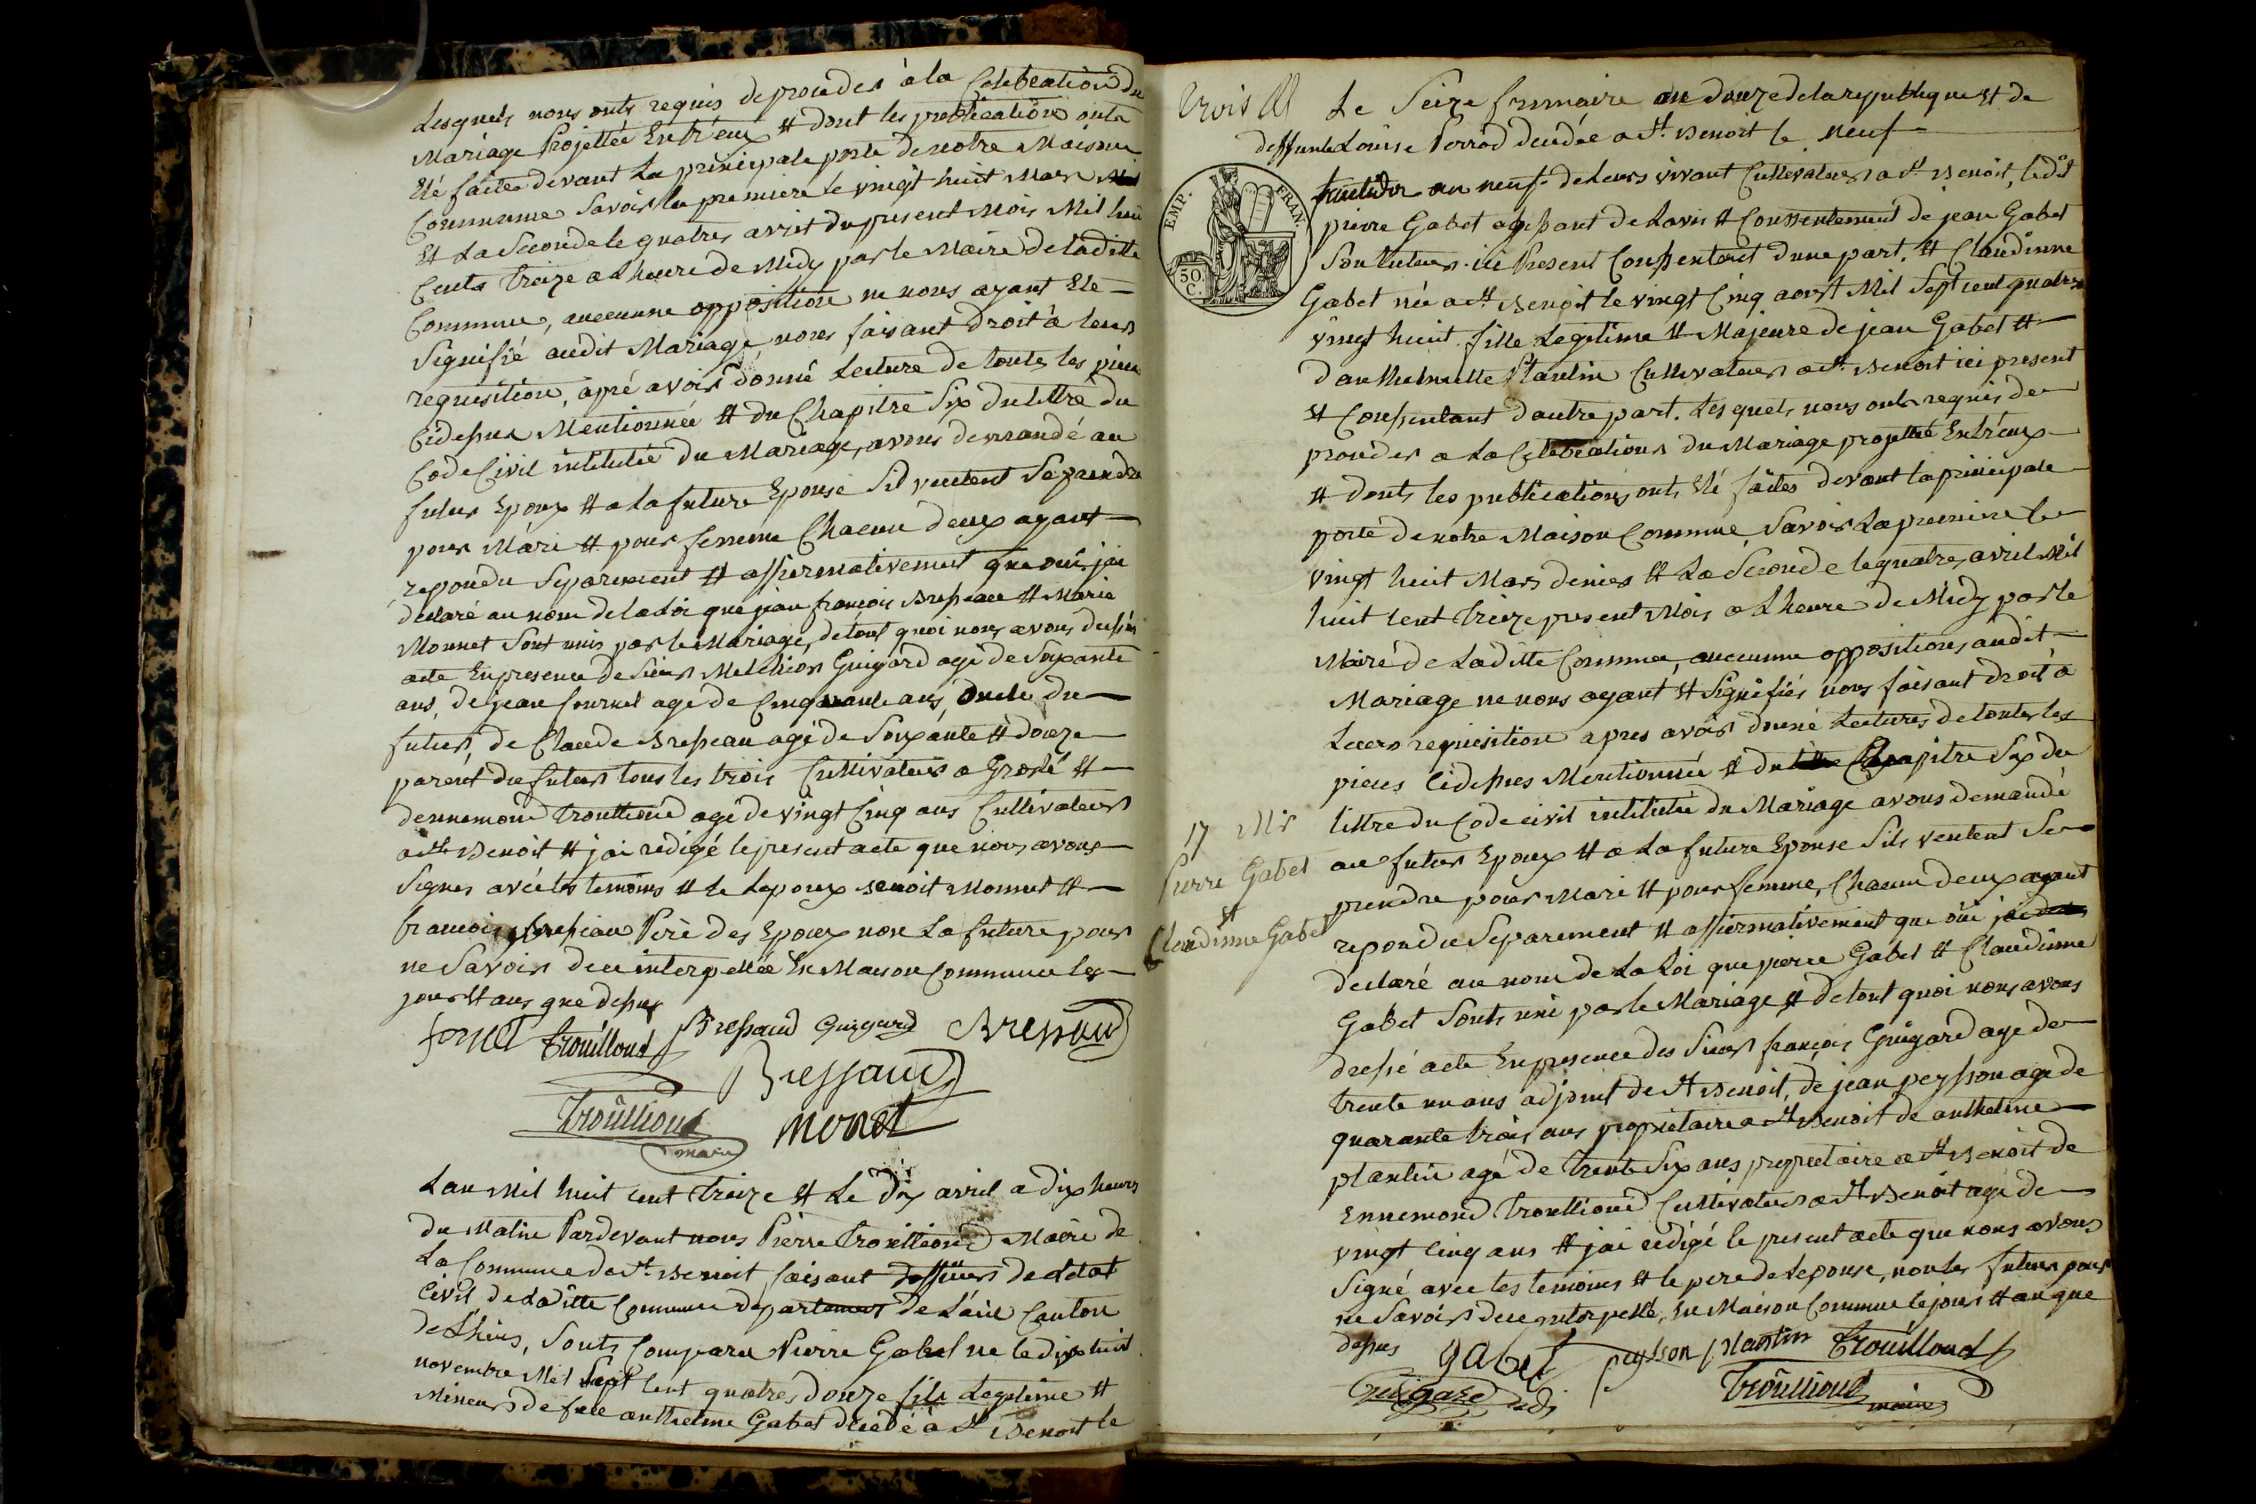 Lesquels nous onts requis de proceder à la Celebration du
Mariage Projettée Entr'eux et dont les publication onts
Eté faites devant La principale porte de notre Maison
Commune Savoir la premiere le vingt huit Mars
Et La Seconde le quatres avril du present Mois Mil huit
Cents treize a L'heure de Midy par le Maire de laditte
Commune, aucunne opposition ne nous ayant Ete
Signifié audit Mariage, nous faisant droit à leurs
requisition, apré avoir donné Lecture de toutes les pieces
Cidessus Mentionnée et du Chapitre Six du tittre du
Code Civil intitulée du Mariage, avons demandé au
futur Epoux et a La future Epouse Sil veulent Se prendre
pour Mári et pour femme Chacun d'eux ayant
repondu Separement et affirmativement que oui, jai
declaré au nom de la Loi que jean françois Bressaud et Marie
Monnet Sont unis par le Mariage, de tout quoi nous avons dressé
acte En presence de Sieurs Melchior Guigard agé de Soixante
ans, de jean fournet agé de Cinquante ans, oncle du
futur, de Claude Bressau agé de Soixante et douze
parent du futur tous les trois Cultivateurs a Groslé et
dennemond trouilloud agé de vingt Cinq ans Cultivateur
a St Benoit et jai redigé le present acte que nous avons
Signer avec les temoins et le Lepoux Benoit Monnet et
francois Bressau Père des Epoux non La future pour
ne Savoir de ce interpellée En Maison Commune les
jour et ans que dessus
fornet trouilloud Bressaud Guigard Bressaud
Bressaud
trouilloud monet
maire
Lan Mil huit cent treize et Le dix avril a dix heures
du Matin Pardevant nous Pierre trouilloud Maire de
La Commune de St Benoit faisant de L'etat
Civil de Laditte Commune departement de L'ain Canton
de Lhuis, Sonts Comparu Pierre Gabet né le dix huit
novembre Mil Sept Cent quatre douze fils Legitime et
Mineur de feu anthelme Gabet décédé à St Benoit le
trois
Le Seize frimaire an douze de la republique et de
deffunte Louise Perrod decedée a St Benoit le neuf
an neuf de Leurs vivant Cultivateurs a St Benoit, ledit
pierre Gabet agissant de Lavis et Consentement de jean Gabet
Son tuteur ici Present Consentant d'une part, et Claudinne
Gabet née a St Benoit le vingt Cinq aoust Mil Sept cent quatre
vingt huit fille Legitime et Majeure de jean Gabet et
danthelmette Plantin Cultivateurs a St Benoit ici present
et Consentant d'autre part. Les quels nous onts requis de
proceder a La Celebrations du Mariage projetté Entr'eux
et donts les publications onts Eté faites devant la principale
porte de notre Maison Commune, Savoir La premiere le
vingt huit Mars dernier et La Seconde le quatres avril Mil
huit cent treize present Mois a L'heure de Midy par le
Maire de Laditte Commune, aucunne oppositions audit
Mariage ne nous ayant Et Signifiés nous faisant droit à
Leurs requisition apres avoir donné Lectures de toutes les
pieces Cidessus Mentionnée et du Chapitre Six du
tittre du Code civil intitulée du Mariage avons demandé
au futur Epoux et a La future Epouse Sils veulent Se
prendre pour Mari et pour femme, Chacun d'eux ayant
repondu Separement et affirmativement que oui
declaré au nom de La Loi que pierre Gabet et Claudinne
Gabet Sonts uni par le Mariage, et de tout quoi nous avons
dressé acte En presence des Sieurs françois Guigard agé de
trente un ans adjoint de St Benoit, de jean peysson agé de
quarante trois ans propriétaire a St Benoit de anthelme
plantin agé de trente Six ans propriétaire a St Benoit de
Ennemond trouilloud Cultivateur a St Benoit agé de
vingt Cinq ans et jai redigé le present acte que nous avons
Signé avec les temoins et le pere de Lépouse, non les futurs pour
ne Savoir de ce interpellé, En Maison Commune le jour et an que
dessus
gabet peysson plantin trouilloud
Guigard adj trouilloud maire
EMP. FRAN.
50
C.
17 Mr
Pierre Gabet
et
Claudinne Gabet